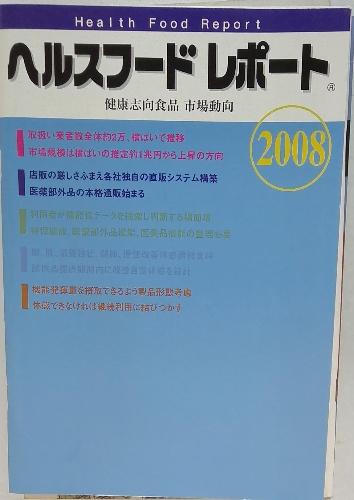 Health Food Report
ヘルスフード レポート®
健康志向食品 市場動向
2008
取扱い業者数全体約2万、横ばいで推移
市場規模は横ばいの推定約1兆円から上昇の方向
店販の厳しさふまえ各社独自の直販システム構築
医薬部外品の本格通販始まる
利用者が機能性データを検索し判断する
機能発揮量を摂取できるよう製品形態考慮
体感できなければ継続利用に結びつかず